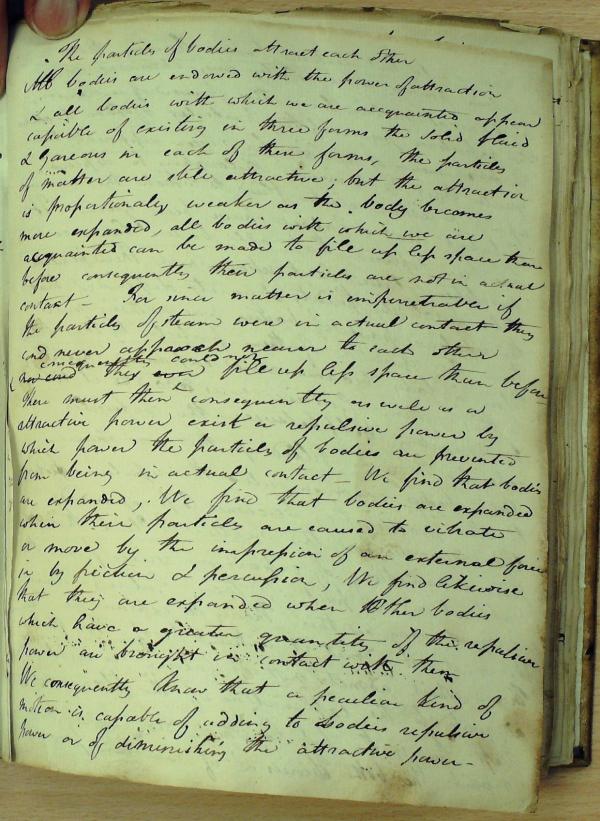 The particles of bodies attract each other
All bodies are endowed with the power of attraction
& all bodies with which we are acquainted appear
capable of existing in three forms the solid fluid
& Gaseous in each of these forms, the particles
of matter are still attractive; but the attraction
is proportionaly weaker as the body becomes
more expanded, all bodies with which we are
acquainted can be made to fill up less space than
before consequently their particles are not in actual
contact - For since matter is impenetrable if
the particles of steam were in actual contact they
could never approach nearer to each other
consequently could never
they fill up less space than before
There must then consequently as well as a
attractive power exist a repulsive power by
which power the particles of bodies are prevented
from being in actual contact - We find that bodies
are expanded, We find that bodies are expanded
when their particles are caused to vibrate
or move by the impression of an external force
ie by friction & percussion, We find likewise
that they are expanded when other bodies
which have a greater quantity of the repulsive
power are brought in contact with them
We consequently know that a peculiar kind of
motion is capable of adding to bodies repulsive
power or of diminishing the attractive power -